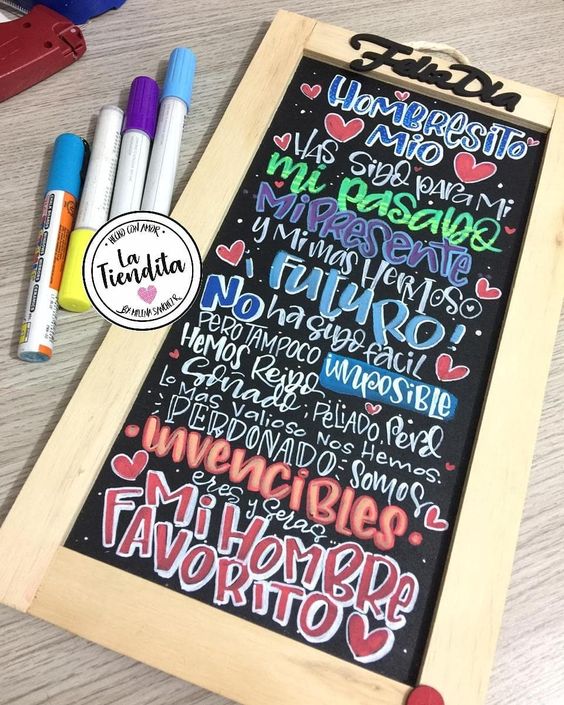 Feliz Dia
Hombresito
Mio
Has sido para mi
mi pasado
mi presente
y mi mas Hermoso
¡Futuro!
No ha sido facil
Pero tampoco imposible
Hemos Reido
Soñado, Peliado, Perd
Lo Mas Valioso Nos Hemos.
PERDONADO: SOMOS
invencibles
eres y seras...
Mi Hombre
Favorito
HECHO CON AMOR
La
Tiendita
BY MILENA SANCHEZ R.